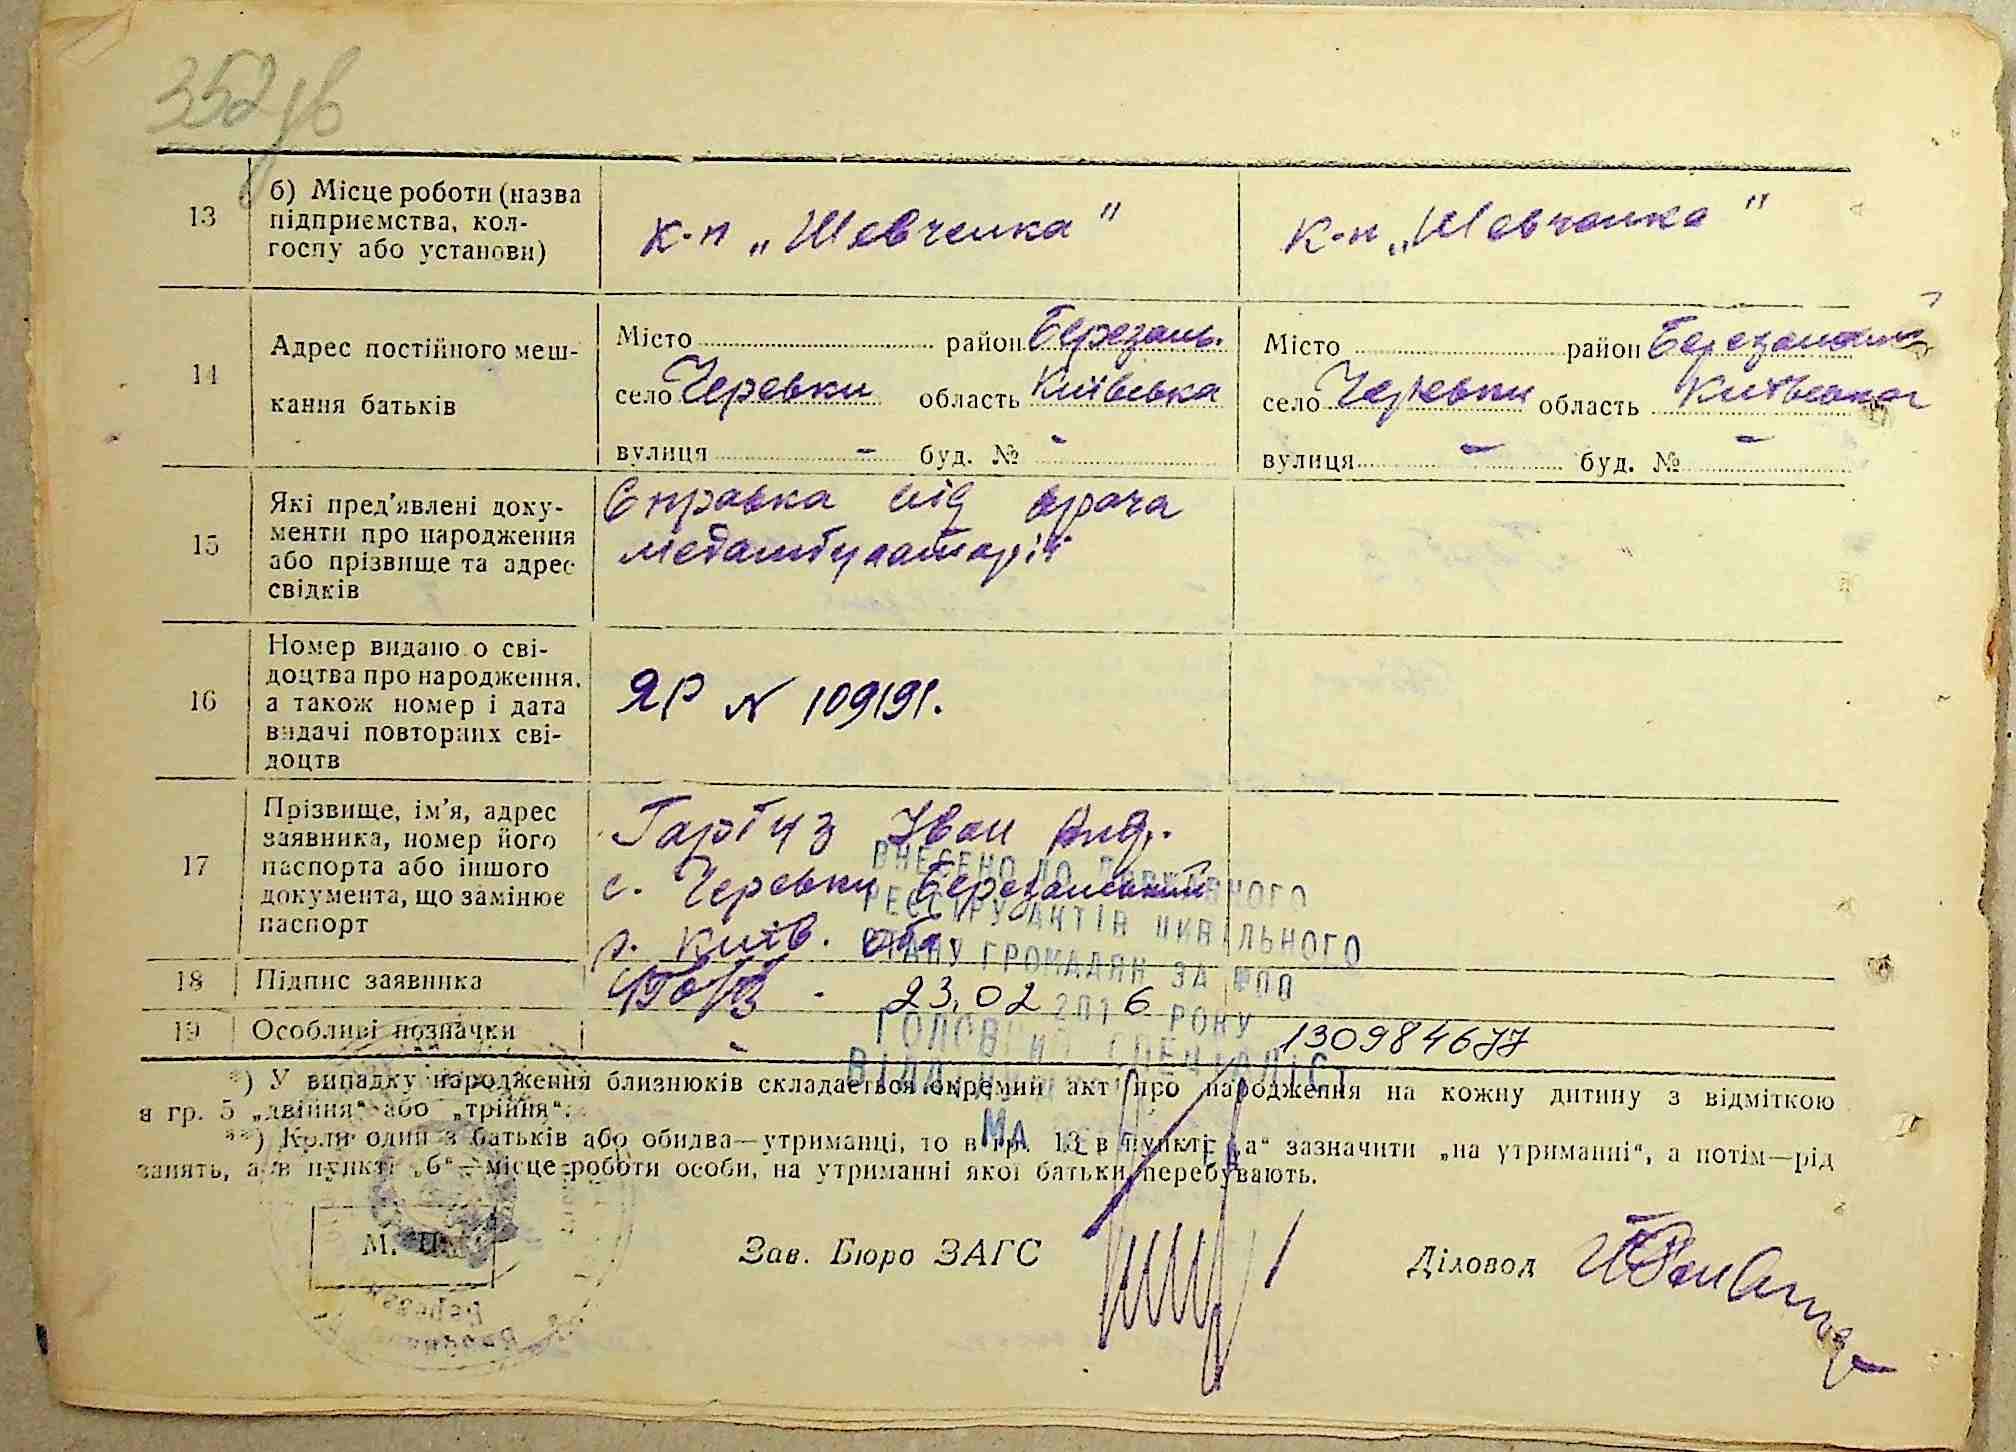 352 зв
13
б) Місце роботи (назва
підприємства, кол-
госпу або установи)
к-п „Шевченка"
к-п „Шевченка"
14
Адрес постійного меш-
кання батьків
Місто район Березань.
село Черевки область Київська
вулиця - буд. № -
Місто район Березанський
село Черевки область Київська
вулиця - буд. № -
15
Які пред'явлені доку-
менти про народження
або прізвище та адрес
свідків
Справка від врача
медамбулаторії
16
Номер видано о сві-
доцтва про народження,
а також номер і дата
видачі повторних сві-
доцтв
ЯР N 109191.
17
Прізвище, ім'я, адрес
заявника, номер його
паспорта або іншого
документа, що замінює
паспорт
Гарбуз Іван Анд.
с. Черевки Березанський
р. Київ. обл.
ВНЕСЕНО ДО ДЕРЖАВНОГО
РЕЄСТРУ АКТІВ ЦИВІЛЬНОГО
СТАНУ ГРОМАДЯН ЗА
18
Підпис заявника
23.02 2016 РОКУ
19
Особливі позначки
-
ГОЛОВНИЙ СПЕЦІАЛІСТ
130984677
*) У випадку народження близнюків складається окремий акт про народження на кожну дитину з відміткою
в гр. 5 „двійня" або „трійня".
**) Коли один з батьків або обидва—утриманці, то в гр. 13 в пункті „а" зазначити „на утриманні", а потім—рід
занять, а в пункті „б"—місце роботи особи, на утриманні якої батьки перебувають.
М. П.
Зав. Бюро ЗАГС
Діловод